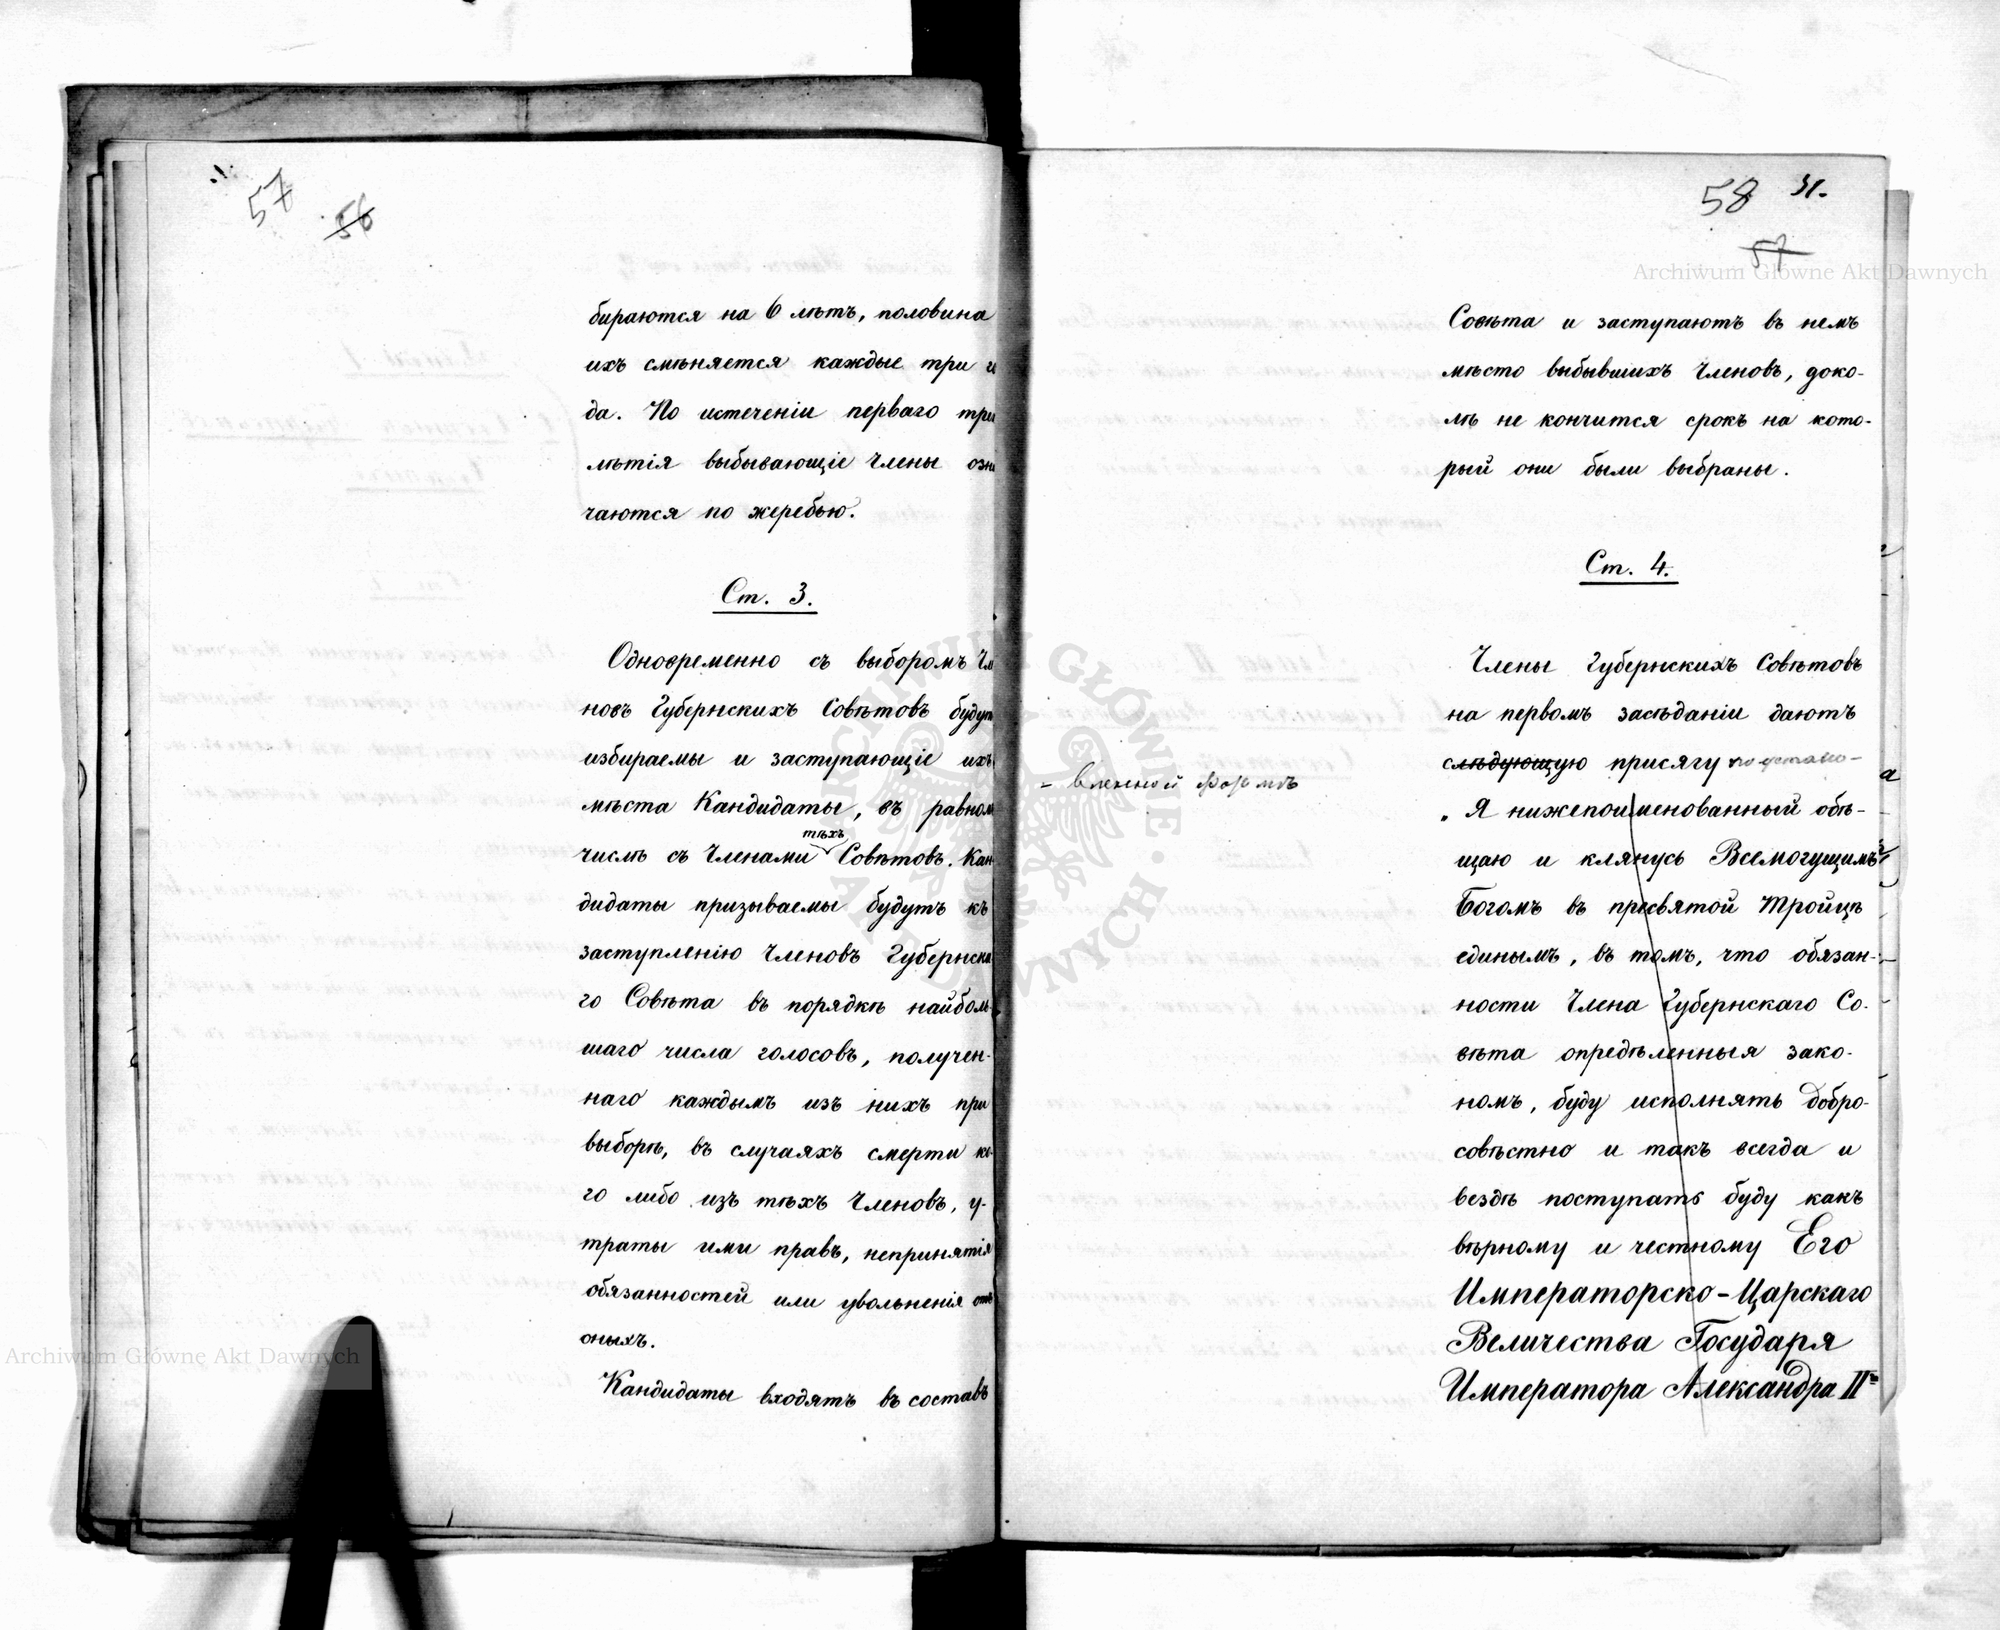 57
56
бираются на 6 лѣтъ, половина
ихъ смѣняется каждые три г
да. По истеченіи перваго три
лѣтія выбывающіе члены озн
чаются по жеребью.
Ст. 3.
Одновременно съ выборомъ Чл
новъ Губернскихъ Совѣтовъ будут
избираемы и заступающіе ихъ
мѣста Кандидаты, въ равном
тѣхъ
числѣ съ Членами Совѣтовъ. Кан
дидаты призываемы будутъ къ
заступленію Членовъ Губернска
го Совѣта въ порядкѣ наиболь
шаго числа голосовъ, получен-
наго каждымъ изъ нихъ при
выборѣ, въ случаяхъ смерти ко
го либо изъ тѣхъ Членовъ, у-
траты ими правъ, непринятія
обязанностей или увольненія отъ
оныхъ.
Кандидаты входятъ въ составъ
58 31.
57
Совѣта и заступаютъ въ немъ
мѣсто выбывшихъ Членовъ, доко-
лѣ не кончится срокъ на кото-
рый они были выбраны.
Ст. 4.
Члены Губернскихъ Совѣтовъ
на первомъ засѣданіи даютъ
слѣдующую присягу по устано-
- вленной формѣ
„ Я нижепоименованный обѣ-
щаю и клянусь Всемогущимъ
Богомъ въ пресвятой Тройцѣ
единымъ, въ томъ, что обязан-
ности Члена Губернскаго Со-
вѣта опредѣленныя зако-
номъ, буду исполнять добро-
совѣстно и такъ всегда и
вездѣ поступать буду какъ
вѣрному и честному Его
Императорско-Царскаго
Величества Государя
Императора Александра II
Archiwum Główne Akt Dawnych
Archiwum Główne Akt Dawnych
ARCHIWUM GŁÓWNE AKT DAWNYCH